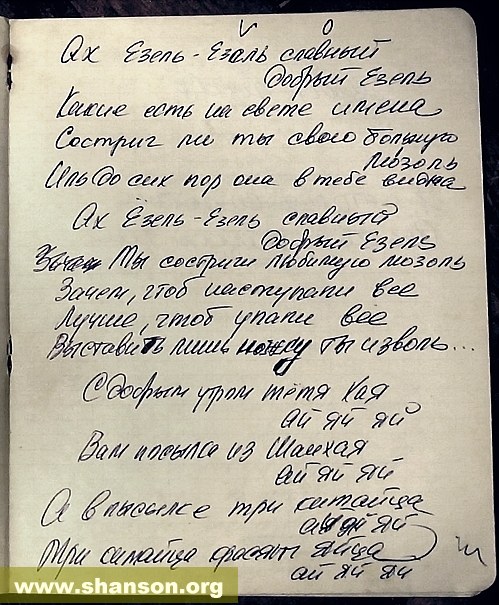 V O
Ах Езель - Езель славный
добрый Езель
Какие есть на свете имена
Состриг ли ты свою большую
мозоль
Иль до сих пор она в тебе видна
Ах Ёзель - Езель славный
добрый Езель
Зачем Ты состриги любимую мозоль
Зачем, чтоб наступали все
Лучше, чтоб упали все
Выставить лишь ножку ты изволь...
С добрым утром тётя Хая
ай яй яй
Вам посылка из Шанхая
ай яй яй
А в посылке три китайца
ай яй яй
Три китайца красят яйца
ай яй яй
www.shanson.org